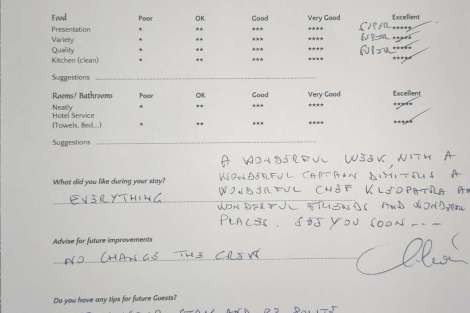 Food Poor OK Good Very Good Excellent
Presentation * ** *** **** SUPER *****
Variety * ** *** **** SUPER *****
Quality * ** *** **** SUPER *****
Kitchen (clean) * ** *** **** *****
Suggestions
Rooms/ Bathrooms Poor OK Good Very Good Excellent
Neatly * ** *** **** *****
Hotel Service
(Towels, Bed...) * ** *** **** *****
Suggestions
A WONDERFUL WEEK, WITH A
WONDERFUL CAPTAIN DIMITRIS A
What did you like during your stay? WONDERFUL CHEF KLEOPATRA AN
EVERYTHING WONDERFUL FRIENDS AND WONDERFUL
PLACES. SEE YOU SOON ---
Advise for future improvements
NO CHANGE THE CREW
Do you have any tips for future Guests?
AND BE POLITE